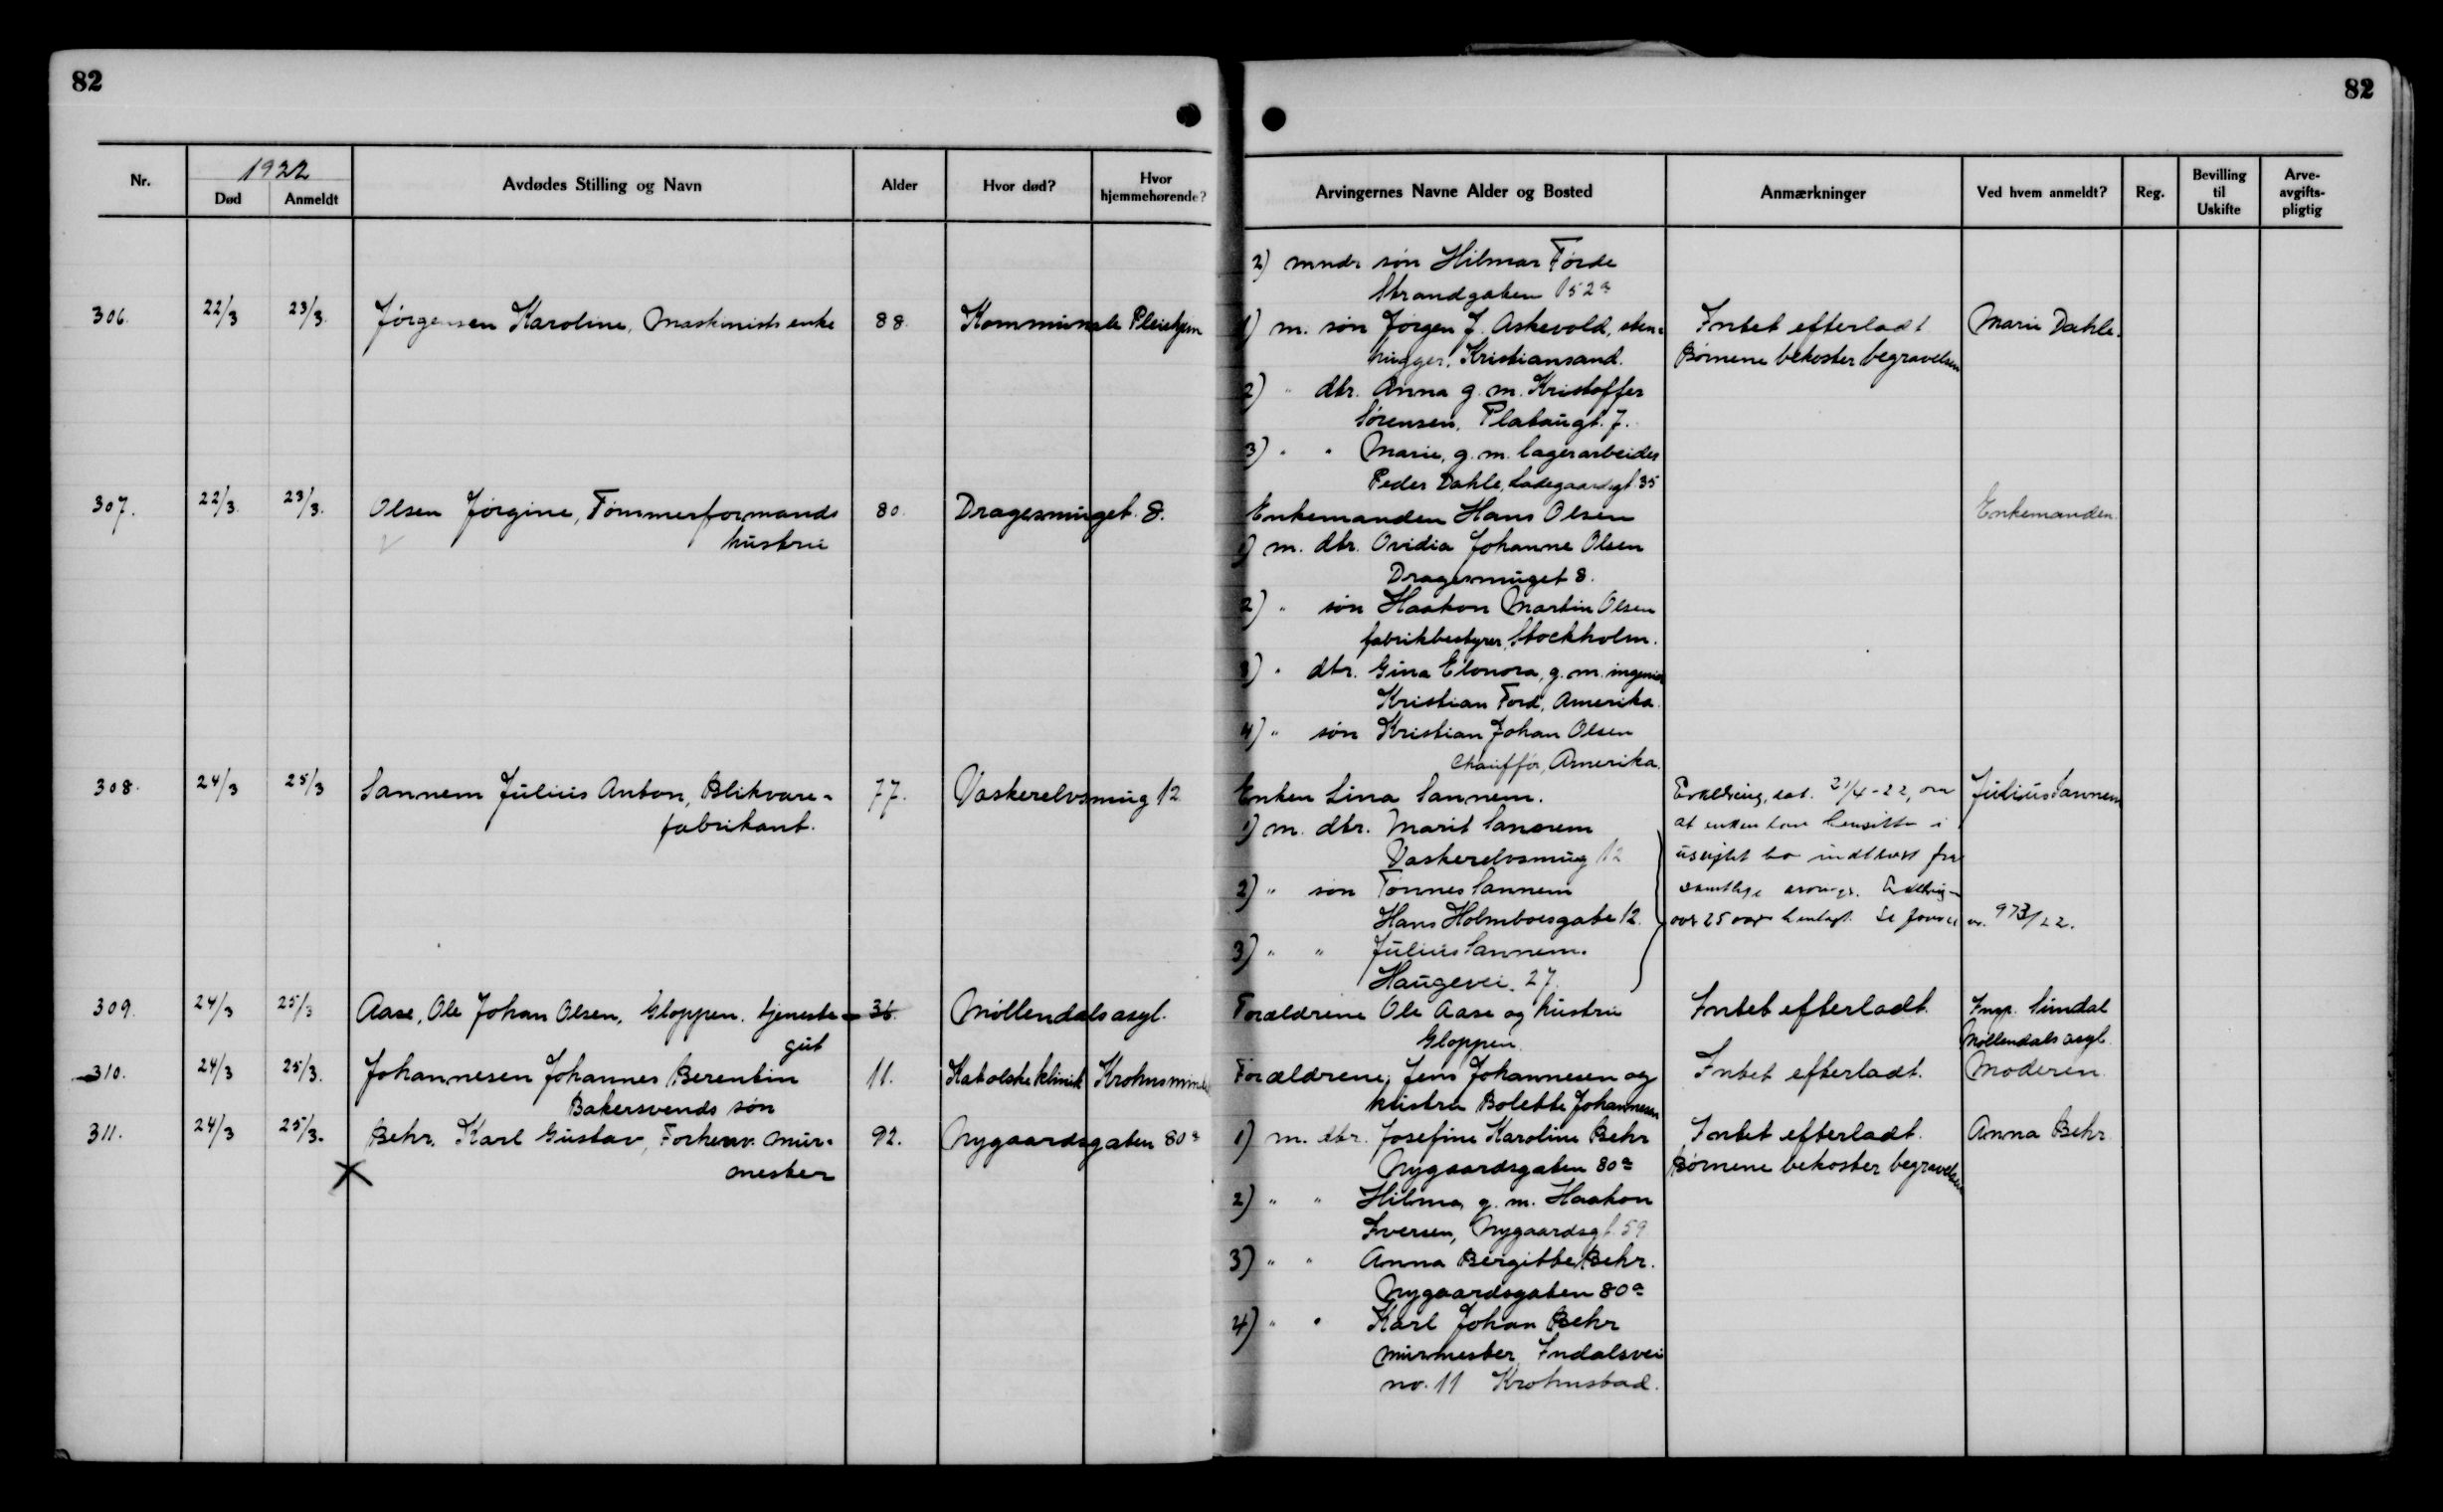 82
82
Nr.
1922
Død
Anmeldt
Avdødes Stilling og Navn
Alder
Hvor død?
Hvor hjemmehørende?
Arvingernes Navne Alder og Bosted
Anmærkninger
Ved hvem anmeldt?
Reg.
Bevilling til Uskifte
Arve-avgifts-pligtig
2) mndr søn Hilmar Førde
Strandgaten 152a
306. 22/3 23/3. Jørgensen Karoline, Maskinists enke 88. Kommunale Pleiehjem
1) m. søn Jørgen J. Askevold, sten- Intet efterladt Marie Dahle.
hugger, Kristiansand. Børnene bekoster begravelsen
2) " dtr. Anna g. m. Kristoffer
Sørensen, Plataugt. 7.
3) " " Marie, g. m. lagerarbeider
Peder Dahle, Ladegaardsgt. 35
307. 22/3. 23/3. Olsen Jørgine, Tømmerformands 80. Dragesmuget 8.
hustru
Enkemanden Hans Olsen Enkemanden
1) m. dtr. Ovidia Johanne Olsen
Dragesmuget 8.
2) " søn Haakon Martin Olsen
fabrikbestyrer, Stockholm.
3) " dtr. Gina Elonora, g. m. ingeniør
Kristian Ford, Amerika.
4) " søn Kristian Johan Olsen
Chauffør, Amerika.
308. 24/3 25/3 Sannem Julius Anton, Blikvare- 77. Vaskerelvsmug 12
fabrikant.
Enken Lina Sannem. Erklæring, dat. 21/4-22, om Julius Sannem
1) m. dtr. Marit Sannem at enken kan hensitte i
Vaskerelvsmug 12 uskiftet bo indlevert fra
2) " søn Tønnes Sannem samtlige arvinger.
Hans Holmboesgate 12. over 25 aar henlagt. Se journal nr. 973/22.
3) " " Julius Sannem.
Haugevei. 27.
309. 24/3 25/3 Aase, Ole Johan Olsen, Gloppen. tjeneste- 36. Møllendals asyl.
gut
Forældrene Ole Aase og hustru Intet efterladt. Insp. Sundal
Gloppen. Møllendals asyl.
310. 24/3 25/3. Johannesen Johannes Berentin 11. Katolske klinik Krohnsminde
Bakersvends søn
Forældrene, Jens Johannesen og Intet efterladt. Moderen
hustru Bolette Johannesen
311. 24/3 25/3. Behr. Karl Gustav, Forhenv. Mur- 92. Nygaardsgaten 80a
mester
1) m. dtr. Josefine Karoline Behr Intet efterladt. Anna Behr
Nygaardsgaten 80a Børnene bekoster begravelsen
2) " " Hilma, g. m. Haakon
Iversen, Nygaardsgt. 59
3) " " Anna Bergitte Behr.
Nygaardsgaten 80a
4) " " Karl Johan Behr
Murmester, Indalsvei
no. 11 Krohnstad.